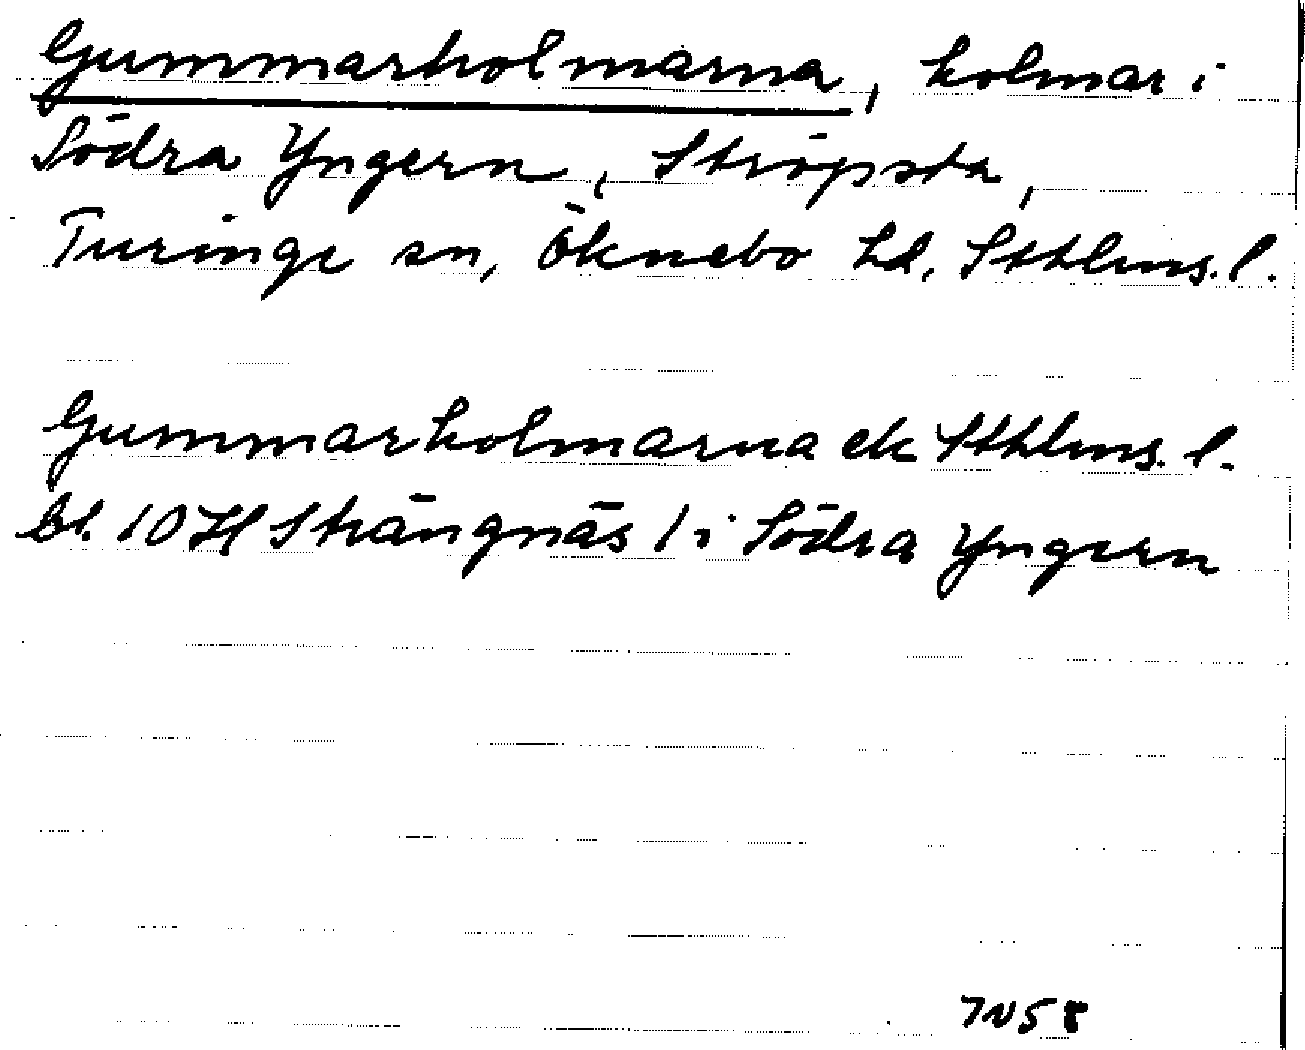 Gummarholmarna, holmar i
Södra Yngern, Ströpsta,
Turinge sn, Öknebo hd, Sthlms. l.
Gummarholmarna ek Sthlms. l.
bl. 10 H Strängnäs / i Södra Yngern
7N58